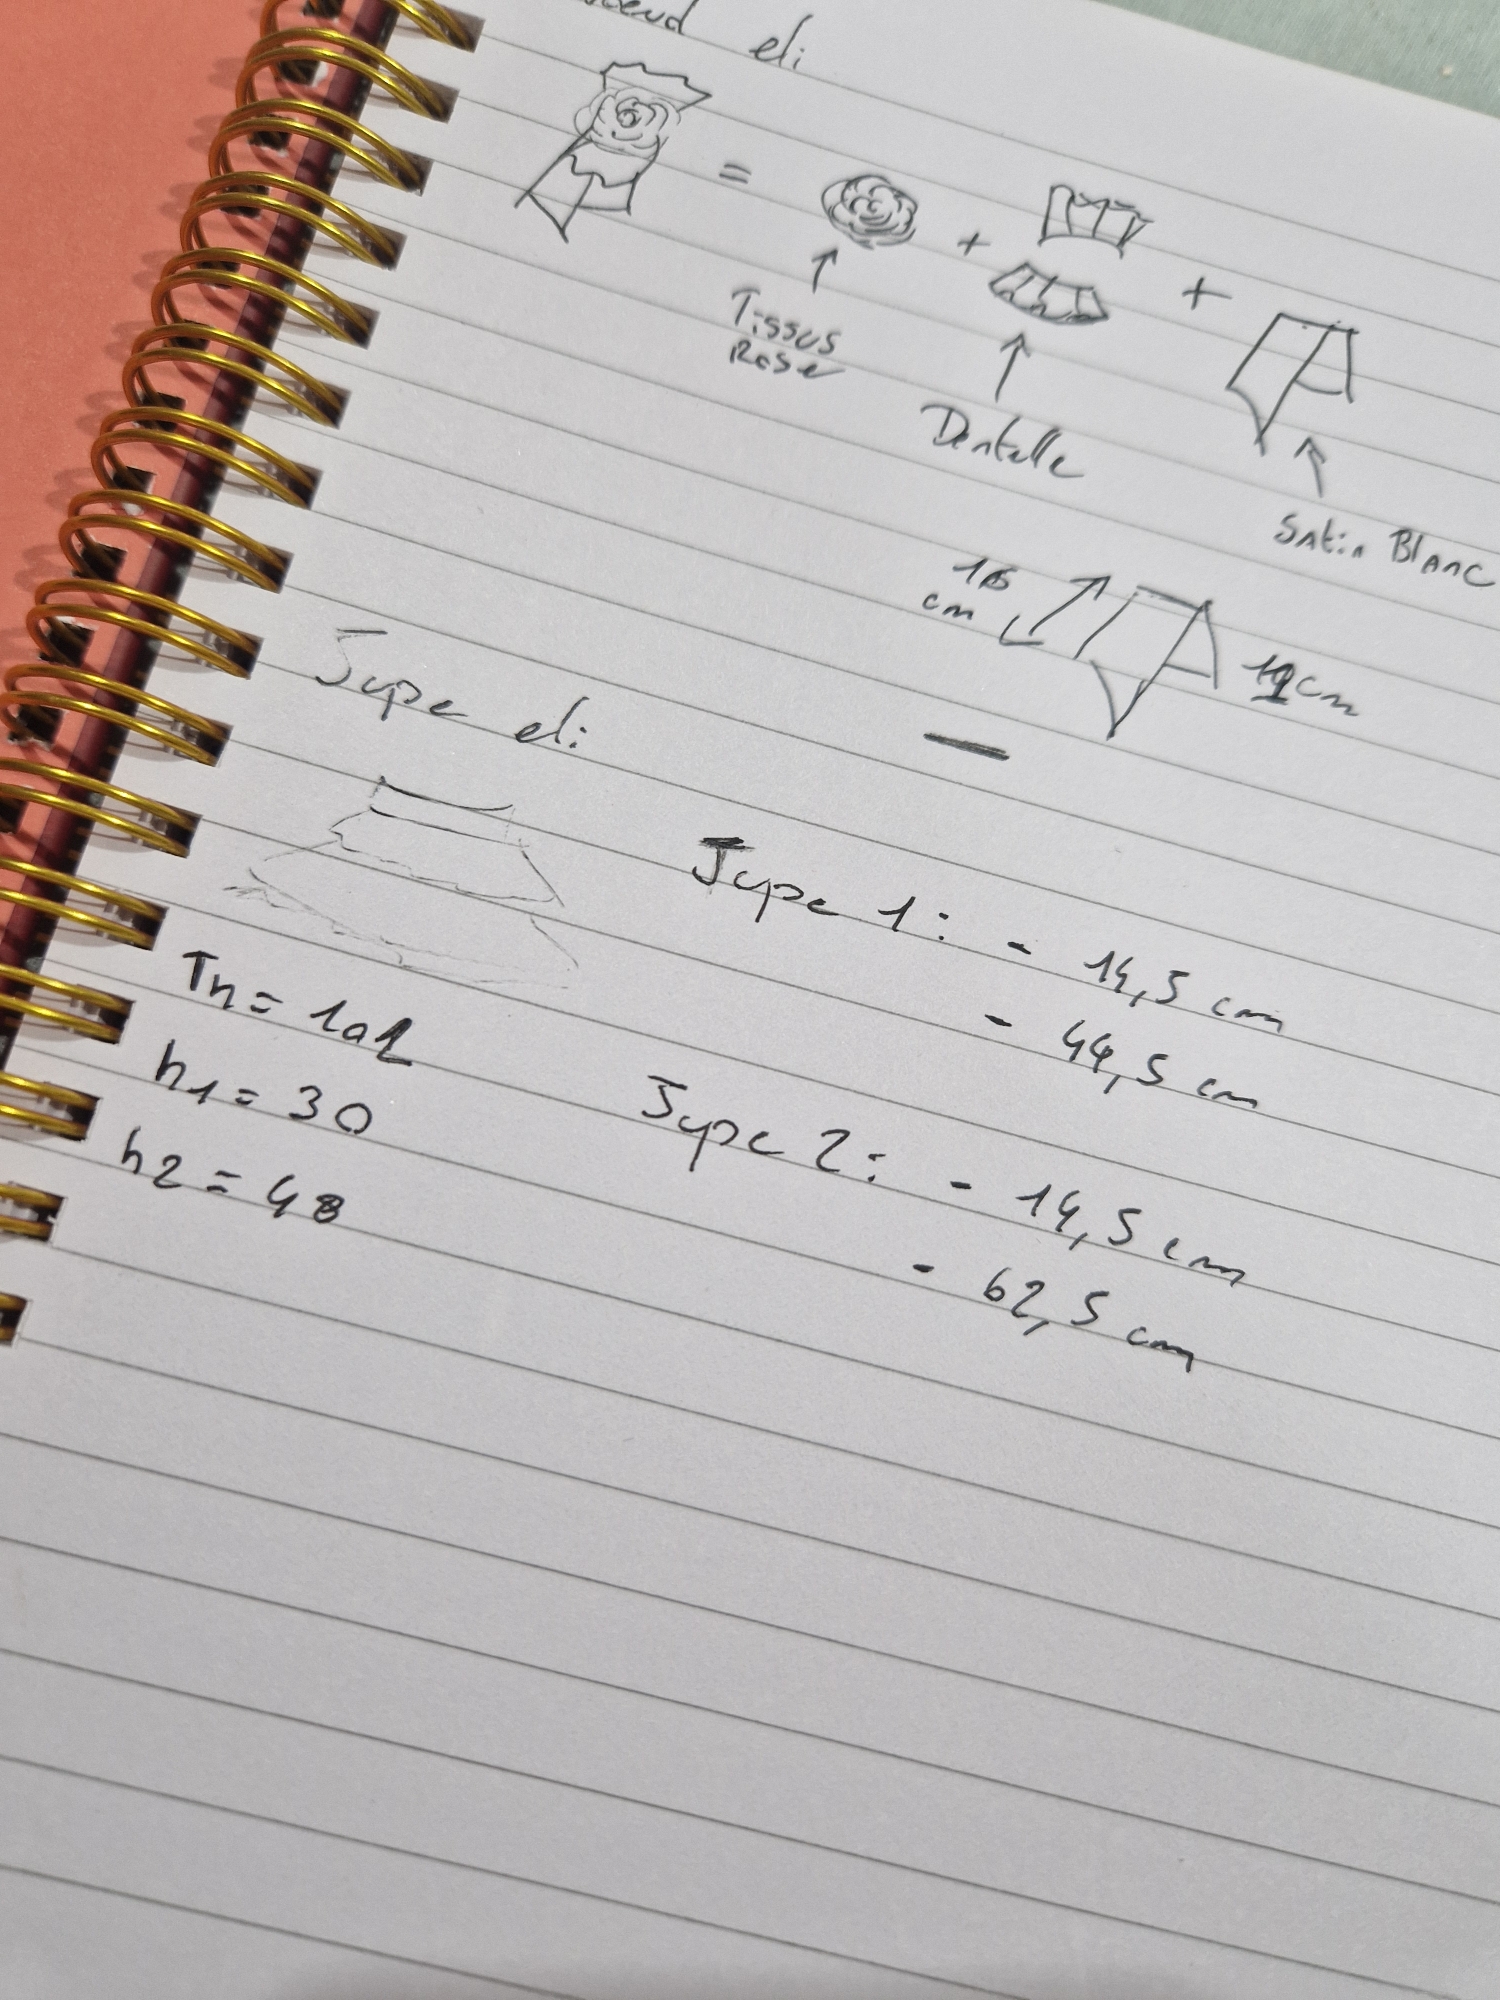 eli
=
+
+
Tissus
Rose
Dentelle
Satin Blanc
cm
cm
Jupe eli
Jupe 1 : - 14,5 cm
- 44,5 cm
h1 = 30
Jupe 2 : - 14,5 cm
h2 = 48
- 62,5 cm